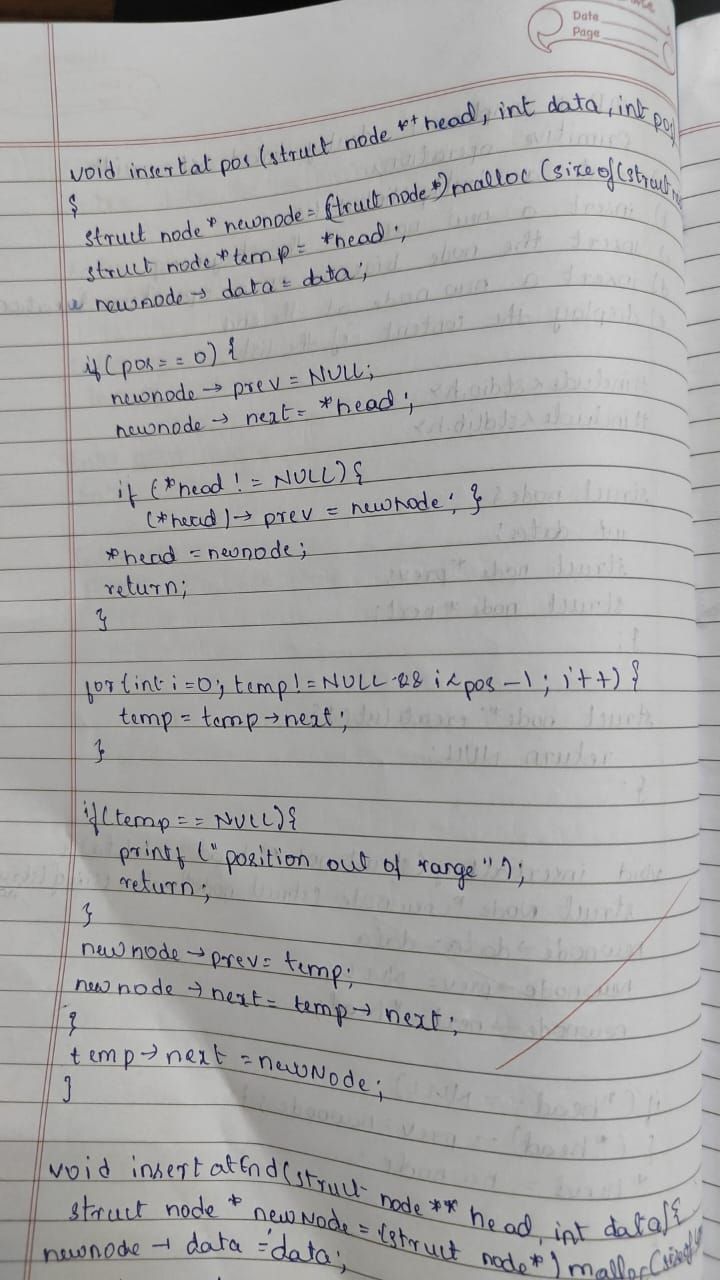 Date
Page
void insertatpos (struct node ** head, int data, int pos
{
struct node * newnode = (struct node*) malloc (sizeof(struct
struct node * temp = *head;
newnode → data = data;
if (pos == 0) {
newnode → prev = NULL;
newnode → next = *head;
if (*head != NULL) {
(*head) → prev = newnode; }
*head = newnode;
return;
}
for (int i=0; temp != NULL && i < pos - 1; i++) {
temp = temp → next;
}
if (temp == NULL) {
printf ("position out of range");
return;
}
newnode → prev = temp;
newnode → next = temp → next;
}
temp → next = newNode;
}
void insertatEnd (struct node ** head, int data) {
struct node * newNode = (struct node*) malloc (sizeof
newnode → data = data;